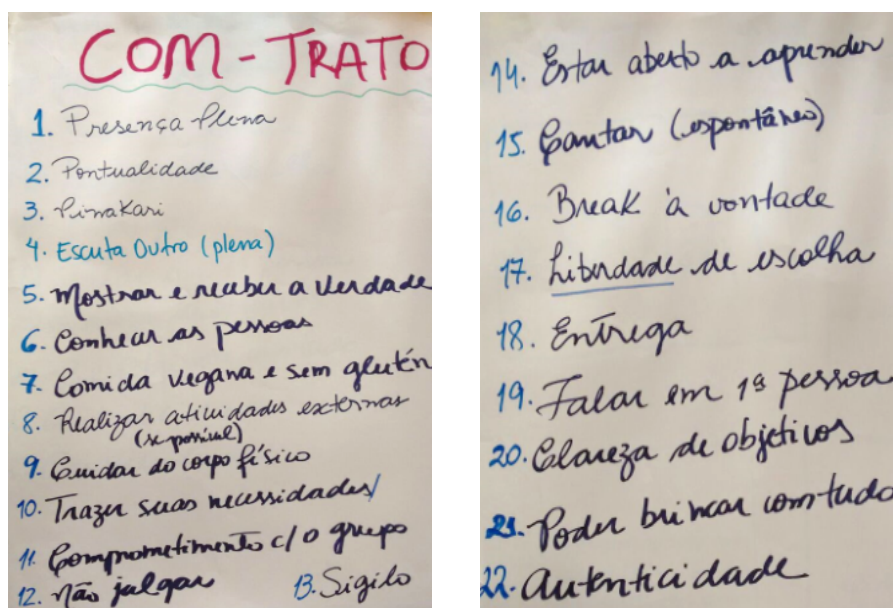 COM-TRATO
1. Presença Plena
2. Pontualidade
3. Pinakari
4. Escuta Outro (plena)
5. Mostrar e receber a verdade
6. Conhecer as pessoas
7. Comida vegana e sem glutén
8. Realizar atividades externas
(se possível)
9. Cuidar do corpo físico
10. Trazer suas necessidades/
11. Comprometimento c/ o grupo
12. Não julgar 13. Sigilo
14. Estar aberto a aprender
15. Cantar (espontâneo)
16. Break à vontade
17. Liberdade de escolha
18. Entrega
19. Falar em 1ª pessoa
20. Clareza de objetivos
21. Poder brincar com tudo
22. Autenticidade